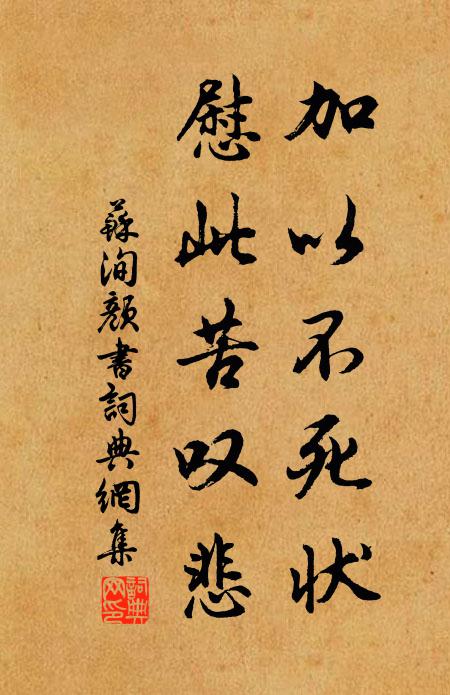 加以不死状
慰此苦叹悲
蘇洵顏書詞典網集
詞典網印